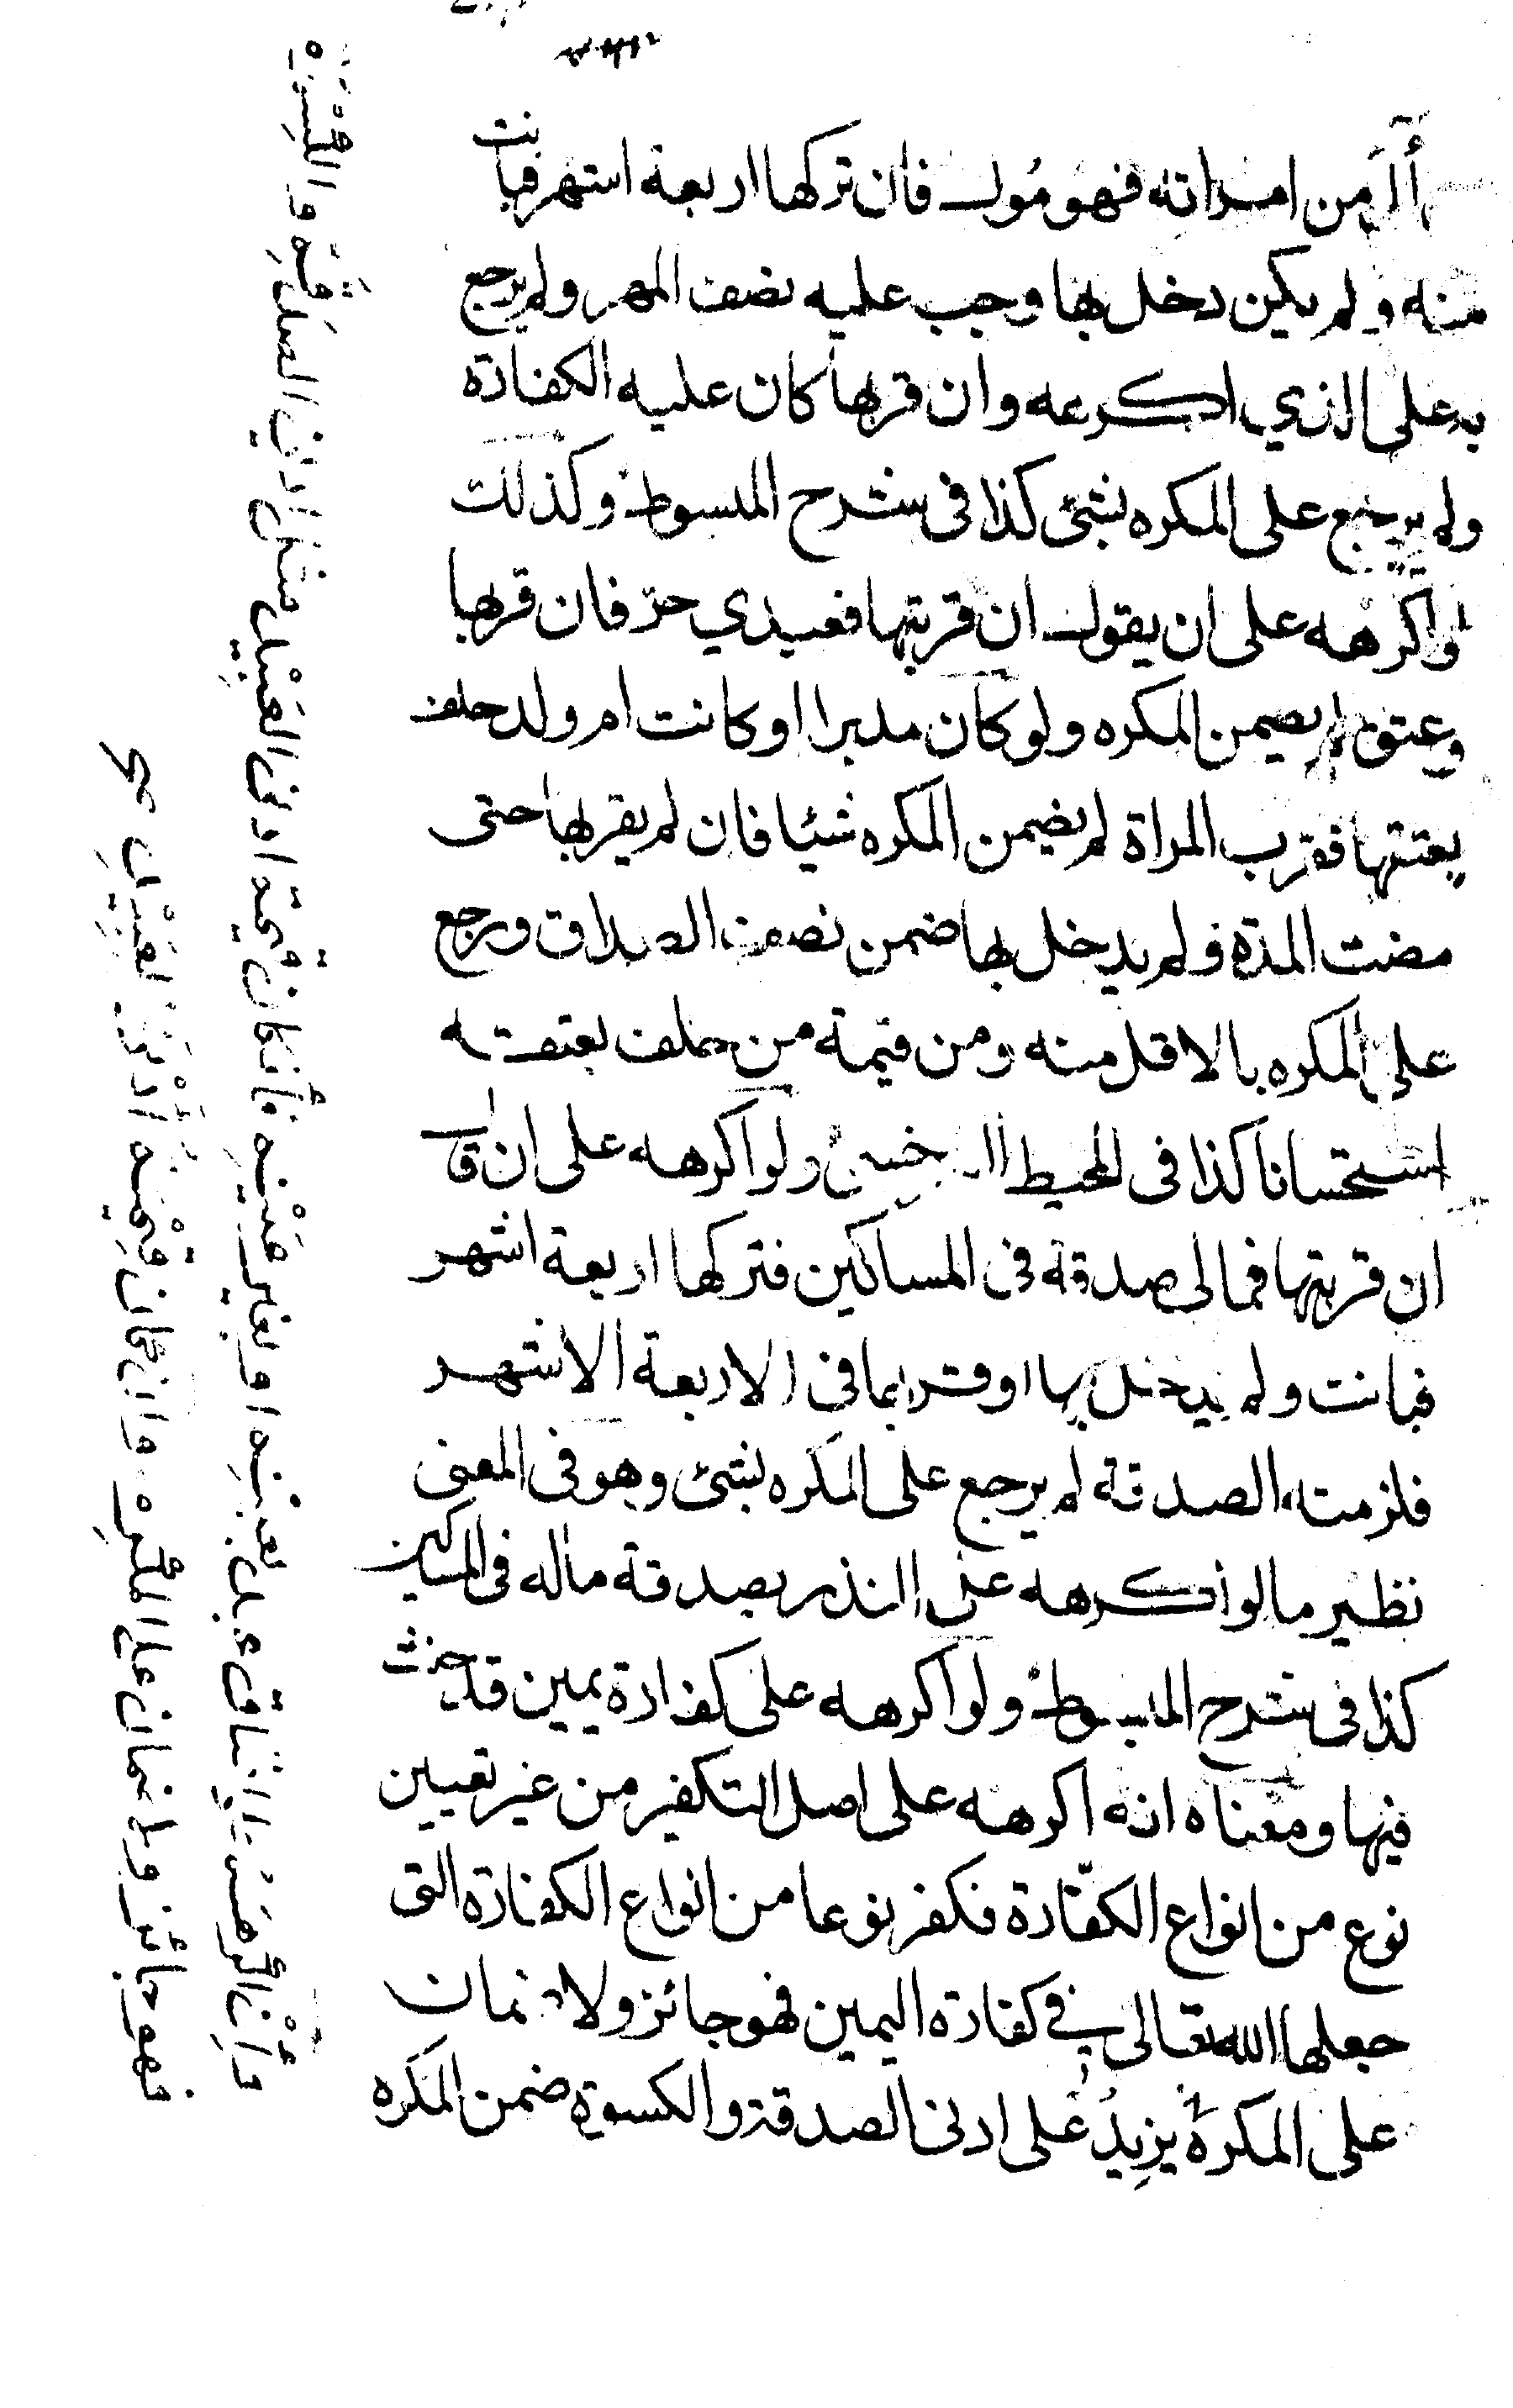 آلا من امراته فهو مول فان تركها اربعة اشهر فبانت
منه ولم يكن دخل بها وجب عليه نصف المهر ولم يرجع
به على الذي اكرهه وان قربها كان عليه الكفارة
ولم يرجع على المكره بشئ كذا فى شرح المبسوط وكذلك
لو اكرهه على ان يقول ان قربتها فعبدي حر فان قربها
وعتق لم يضمن المكره ولو كان مدبرا او كانت ام ولد حلف
بعتقها فقرب المراة لم يضمن المكره شيئا فان لم يقربها حتى
مضت المدة ولم يدخل بها ضمن نصف الصداق ورجع
على المكره بالاقل منه ومن قيمة من حلف بعتقه
استحسانا كذا فى المحيط السرخسى ولو اكرهه على ان قال
ان قربتها فمالى صدقة فى المساكين فتركها اربعة اشهر
فبانت ولم يدخل بها او قربها فى الاربعة الاشهر
فلزمته الصدقة لم يرجع على المكره بشئ وهو فى المعنى
نظير مالو اكرهه على النذر بصدقة ماله فى المساكين
كذا فى شرح المبسوط ولو اكرهه على كفارة يمين قد حنث
فيها ومعناه انه اكرهه على اصل التكفير من غير تعيين
نوع من انواع الكفارة فكفر نوعا من انواع الكفارة التى
جعلها الله تعالى في كفارة اليمين فهو جائز ولا ضمان
على المكره يزيد على ادنى الصدقة والكسوة ضمن المكره
وان اكرهه على اعتاق عبد بعينه او بغير عينه فان كان قيمة ادنى العبيد مثل ادنى الصدقة والكسوة
فهو جائز ولا ضمان على المكره وان كان قيمة ادنى العبيد